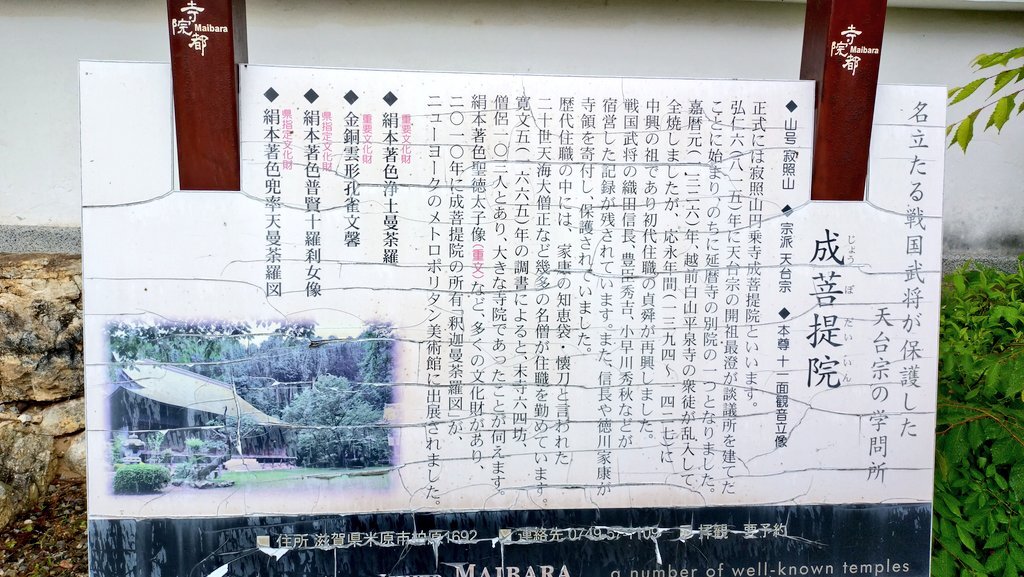 寺院都
Maibara
寺院都
Maibara
名立たる戦国武将が保護した
天台宗の学問所
成菩提院
じょうぼだいいん
◆山号 寂照山 ◆宗派 天台宗 ◆本尊 十一面観音立像
正式には寂照山円乗寺成菩提院といいます。
弘仁六(八一五)年に天台宗の開祖最澄が談議所を建てた
ことに始まり、のちに延暦寺の別院の一つとなりました。
嘉暦元(一三二六)年、越前白山平泉寺の衆徒が乱入して
全焼しましたが、応永年間(一三九四〜一四二七)に
中興の祖であり初代住職の貞舜が再興しました。
戦国武将の織田信長、豊臣秀吉、小早川秀秋などが
宿営した記録が残されています。また、信長や徳川家康が
寺領を寄付し、保護されていました。
歴代住職の中には、家康の知恵袋・懐刀と言われた
二十世天海大僧正など幾多の名僧が住職を勤めています。
寛文五(一六六五)年の調書によると、末寺六四坊、
僧侶一〇三人とあり、大きな寺院であったことが伺えます。
絹本著色聖徳太子像(重文)など、多くの文化財があり、
二〇一〇年に成菩提院の所有「釈迦曼荼羅図」が、
ニューヨークのメトロポリタン美術館に出展されました。
重要文化財
◆絹本著色浄土曼荼羅
重要文化財
◆金銅雲形孔雀文馨
県指定文化財
◆絹本著色普賢十羅刹女像
県指定文化財
◆絹本著色兜率天曼荼羅図
住所 滋賀県米原市柏原1692
連絡先 0749-57-1109
拝観 要予約
MAIBARA
a number of well-known temples